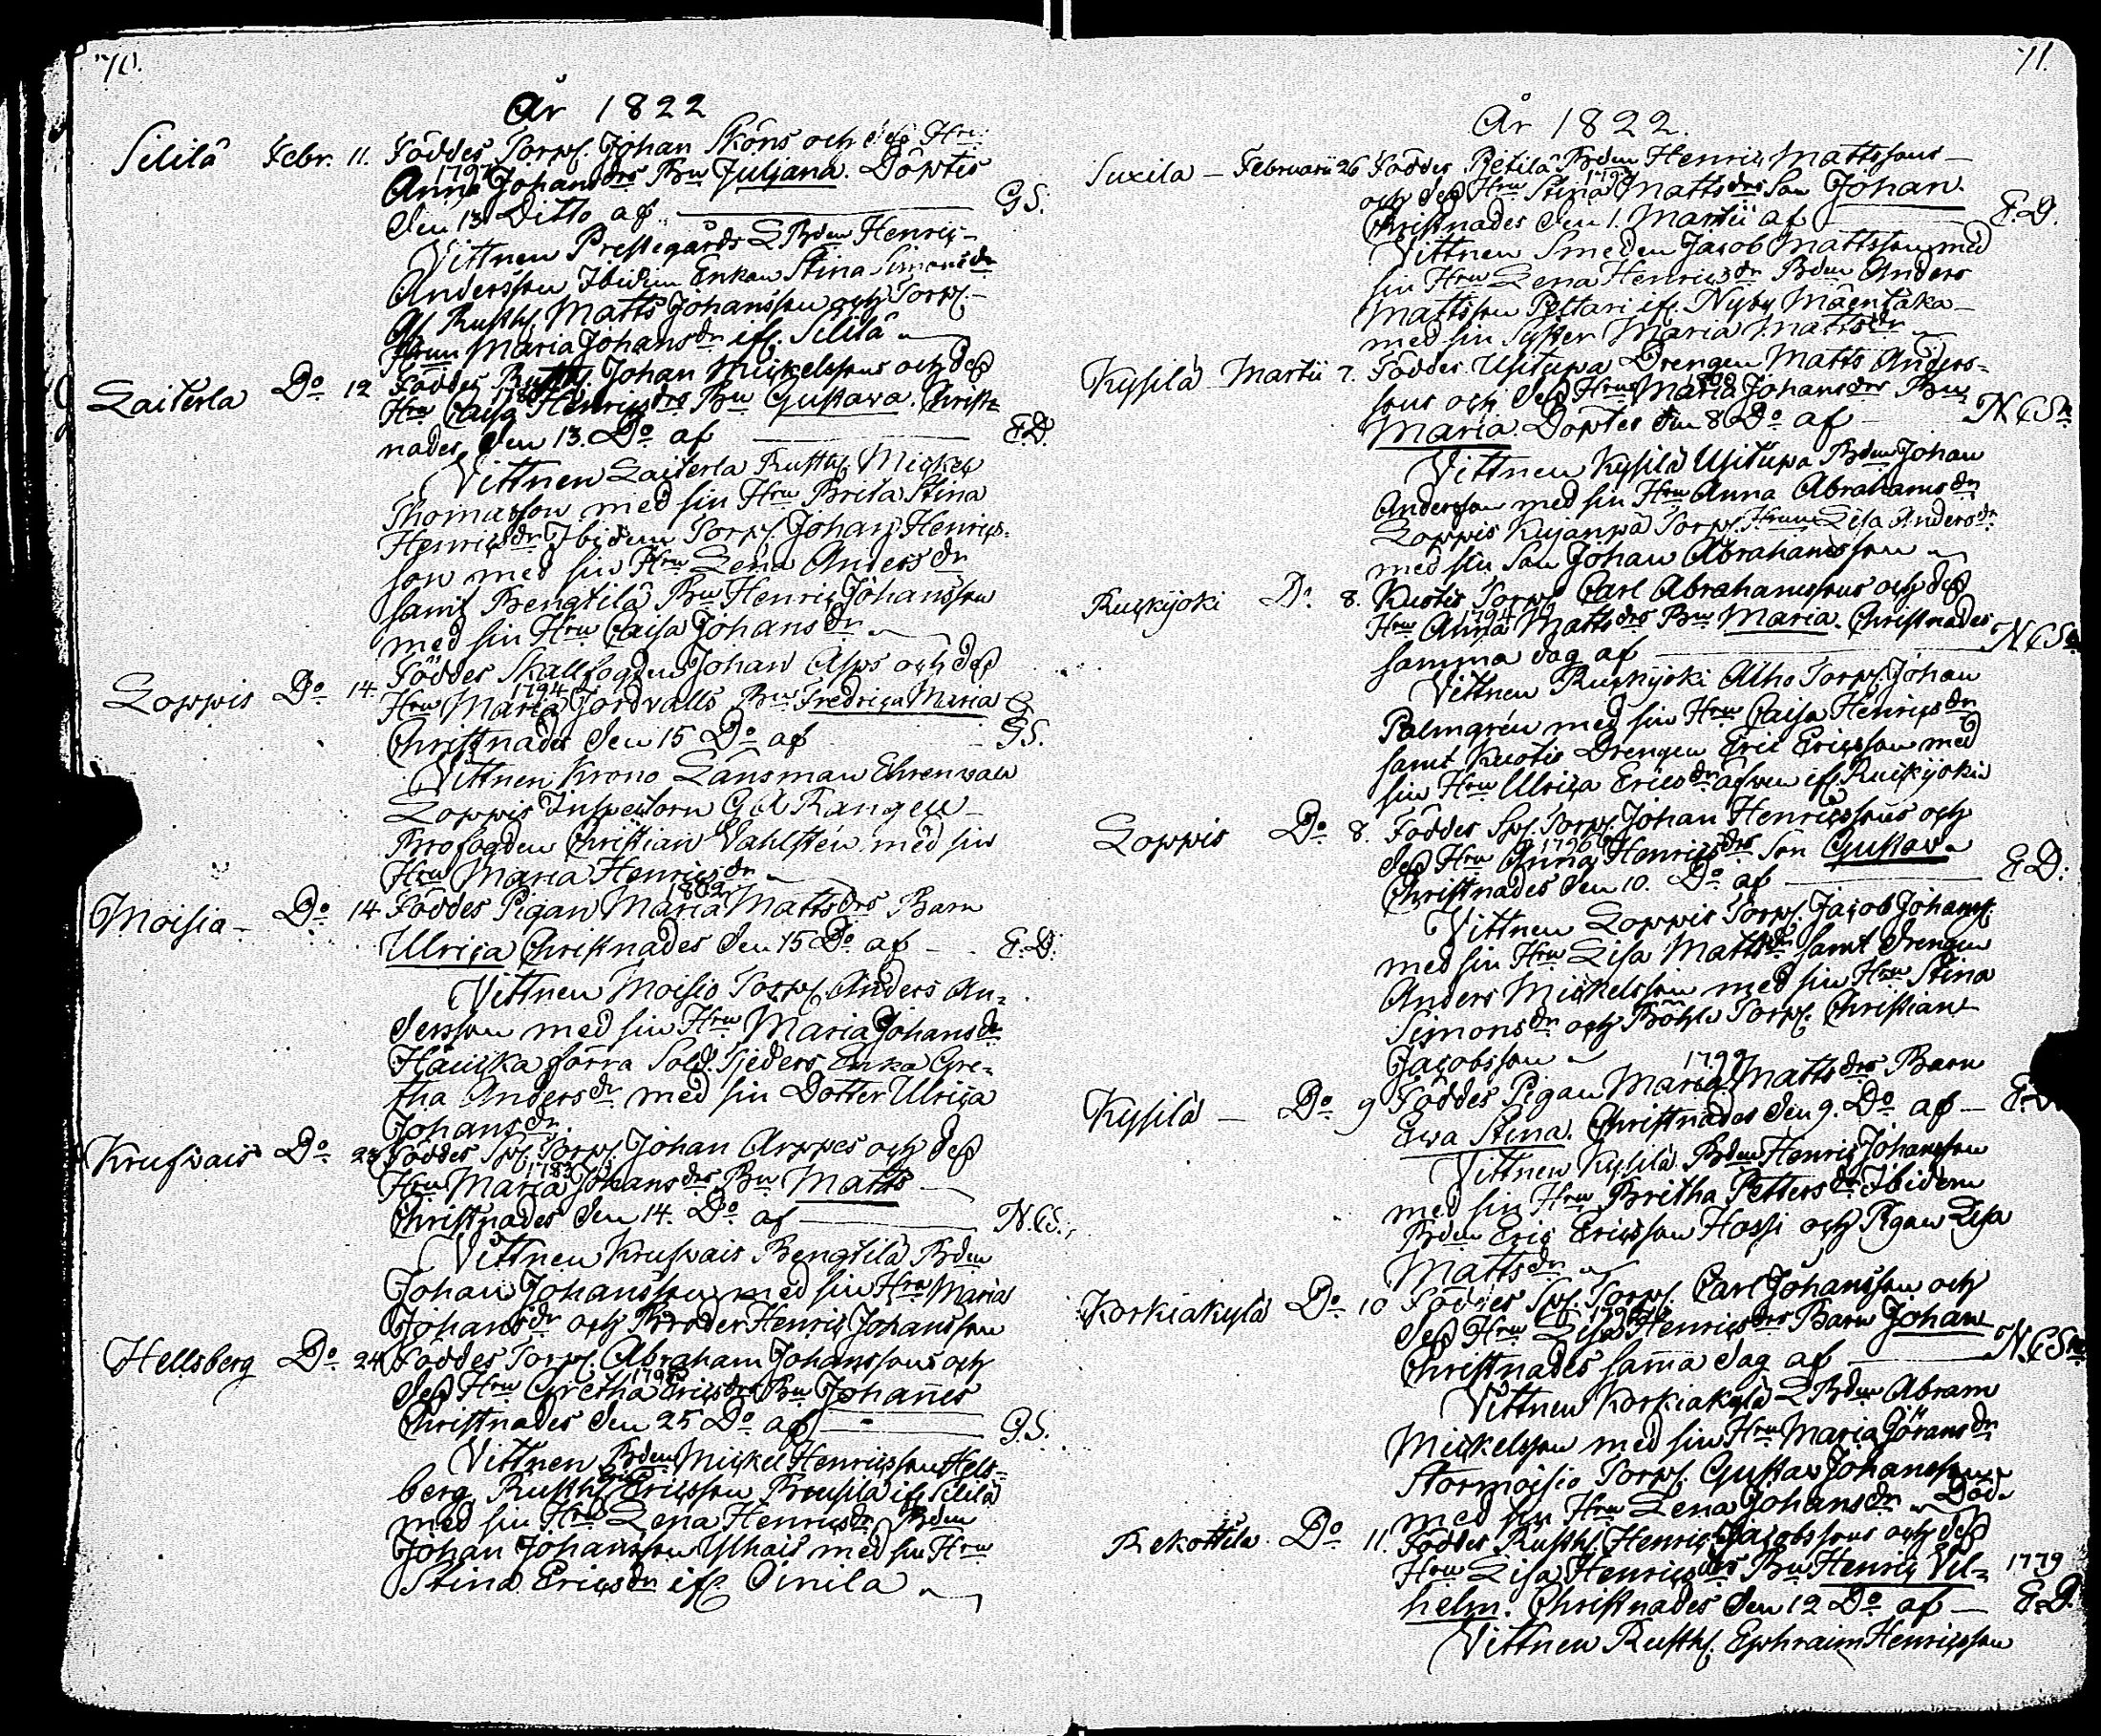 70.
År 1822
Sillilä Febr. 11. Föddes Torp. Johan Sköns och dess Hru
1797
Anna Johansdrs Brn Juljana. Döptis
den 13 Ditto af G.S.
Vittnen Prestegårds L. Bdn Henric
Andersson Ibidem Enkan Stina Simonsdr
Af Rusth. Matts Johansson och Torp.
Hrun Maria Johansdr ifr. Sillilä
Laiterla Do 12 Föddes Rusth. Johan Mickelssons och dess
Hru Caisa Henricsdrs Brn Gustava. Christ=
nades den 13. Do af E.D.
Vittnen Laiterla Rusth. Mickel
Thomasson med sin Hru Brita Stina
Henricsdr Ibidem Torp. Johan Henrics=
son med sin Hru Lena Andersdr
samt Bengtilä Bn Henric Johansson
med sin Hru Caisa Johansdr
Loppis Do 14. Föddes Skallfogden Johan Alps och dess
1794
Hru Maria Jordvalls Brn Fredrica Maria C.
Christnades den 15 Do af G.S.
Vittnen Krono Länsman Ehrenwall
Loppis Inspectorn G A Rangell
Brofogden Christian Vahlstén med sin
Hru Maria Henricsdr
1802
Moisia Do 14 Föddes Pigan Maria Mattsdrs Barn
Ulrica Christnades den 15 Do af E.D.
Vittnen Moisio Torp. Anders An=
dersson med sin Hru Maria Johansdr
Hauicka förra Sold. Tjeders Enka Gre=
tha Andersdr med sin Dotter Ulrica
Johansdr
Krusvais Do 23 Föddes Sp. Torp. Johan Arppes och dess
1783
Hru Maria Johansdrs Brn Matts
Christnades den 14. Do af N.C.S.
Vittnen Krusvais Bengtilä Bdn
Johan Johansson med sin Hru Maria
Johansdr och Broder Henric Johansson
Hellsberg Do 24 Föddes Torp. Abraham Johanssons och
dess Hru Gretha Ericsdrs Brn Johannes
Christnades den 25 Do af G.S.
Vittnen Bdn Mickel Henricsson Hels=
berg Rusth. Eric Ericsson Prusila ifr Sillilä
med sin Hru Lena Henricsdr Bdn
Johan Johansson Ylhais med sin Hru
Stina Ericsdr ifr. Oinila
71.
År 1822.
Suxila Februarii 26 Föddes Pietilä Bdn Henric Mattssons
och dess Hru Stina Mattsdrs Son Johan.
Christnades den 1. Martii af E.D.
Vittnen Smeden Jacob Mattsson med
sin Hru Lena Henricsdr Bdn Anders
Mattsson Pettari ifr. Nyby Mäentaka
med sin Syster Maria Mattsdr
Kysilä Martii 7. Föddes Usitupa Drengen Matts Anders=
sons och dess Hrus Maria Johansdrs Brn
Maria. Döptes den 8 Do af N.C.Sn
Vittnen Kysilä Usitupa Bdn Johan
Andersson med sin Hru Anna Abrahamsdr
Loppis Kujanpä Torp. Hrun Lisa Andersdr
med sin Son Johan Abrahamsson
Ruskijoki Do 8. Kustis Torp. Carl Abrahamssons och dess
1794
Hru Anna Mattsdrs Brn Maria. Christnades
samma dag af N.C.Sn
Vittnen Ruskijoki Alho Torp. Johan
Palmgrén med sin Hru Caisa Henricsdr
samt Kustis Drengen Eric Ericsson med
sin Hru Ulrica Ericsdr äfven ifr. Ruskijoki
Loppis Do 8. Föddes Sp. Torp. Johan Henricssons och
1796
dess Hru Anna Henricsdrs Son Gustav
Christnades den 10. Do af E.D.
Vittnen Loppis Torp. Jacob Johanss.
med sin Hru Lisa Mattsdr samt Drengen
Anders Mickelsson med sin Hru Stina
Simonsdr och Böhle Torp. Christian
Jacobsson
1799
Kysilä Do 9 Föddes Pigan Maria Mattsdrs Barn
Ewa Stina. Christnades den 9. Do af
Vittnen Kysilä Bdn Henric Johansson
med sin Hru Britha Pettersdr Ibidem
Bdn Eric Ericsson Hossi och Pigan Lisa
Mattsdr
Korkiakylä Do 10 Föddes Sp. Torp. Carl Johansson och
dess Hru Lisa Henricsdrs Barn Johan
Christnades samma dag af N.C.Sn
Vittnen Korkiakylä L. Bdn Abram
Mickelsson med sin Hru Maria Göransdr
Stormoisio Torp. Gustav Johansson
med sin Hru Lena Johansdr Död.
Rekottila Do 11. Föddes Rusth. Henric Jacobssons och dess
Hru Lisa Henricsdrs Brn Henric Vil= 1779
helm. Christnades den 12 Do af E.D.
Vittnen Rusth. Ephraim Henricsson